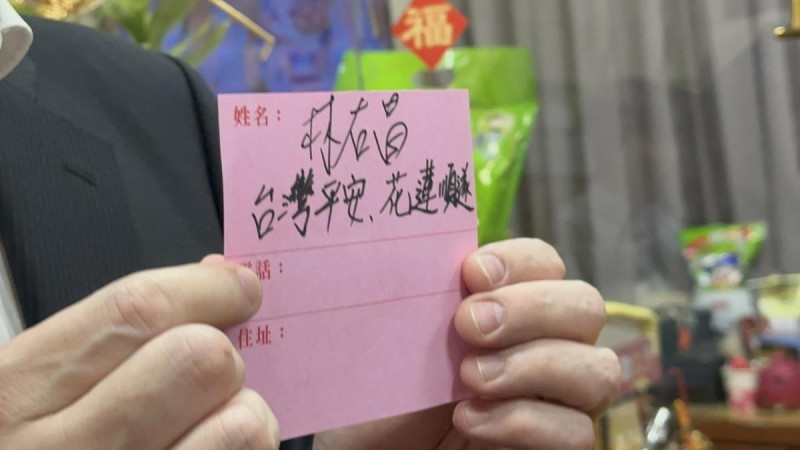 福
姓名：林右昌
台灣平安、花蓮順遂
話：
住址：